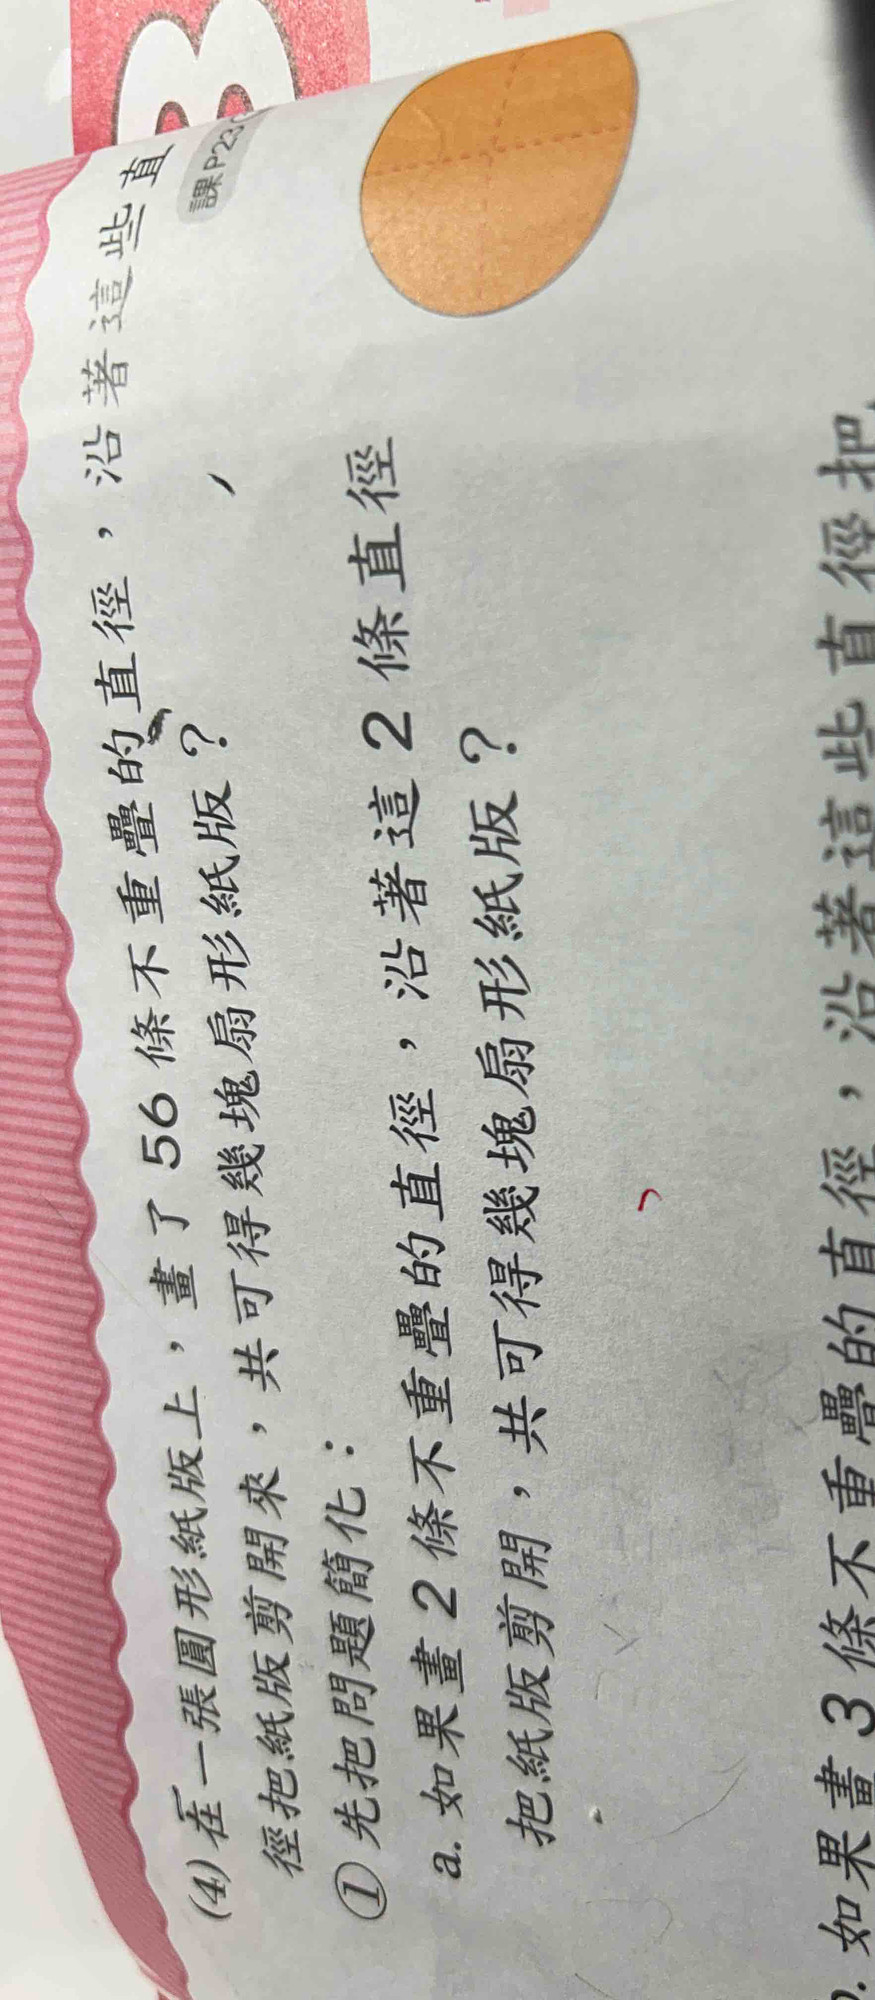 3
課P23
(4)在一張圓形紙版上，畫了56條不重疊的直徑，沿著這些直
徑把紙版剪開來，共可得幾塊扇形紙版？
①先把問題簡化：
a.如果畫2條不重疊的直徑，沿著這2條直徑
把紙版剪開，共可得幾塊扇形紙版？
b.如果畫3條不重疊的直徑，沿著這些直徑把